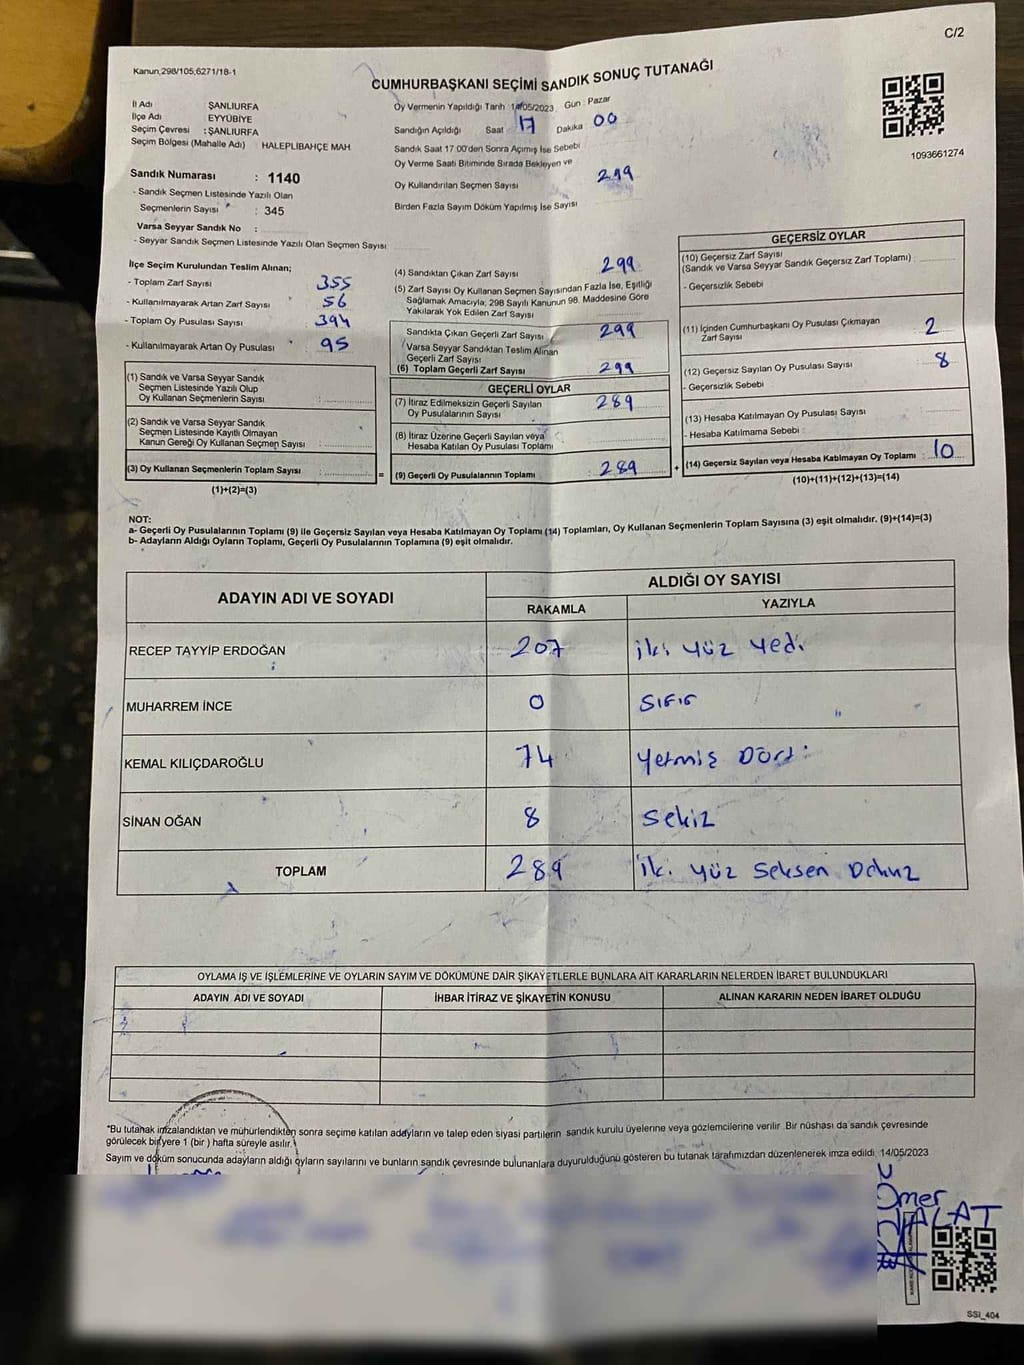 C/2
Kanun,298/105,6271/18-1
CUMHURBAŞKANI SEÇİMİ SANDIK SONUÇ TUTANAĞI
1093661274
İl Adı ŞANLIURFA
İlçe Adı EYYÜBİYE
Seçim Çevresi : ŞANLIURFA
Seçim Bölgesi (Mahalle Adı) HALEPLİBAHÇE MAH
Sandık Numarası : 1140
- Sandık Seçmen Listesinde Yazılı Olan
Seçmenlerin Sayısı : 345
Varsa Seyyar Sandık No :
- Seyyar Sandık Seçmen Listesinde Yazılı Olan Seçmen Sayısı
Oy Vermenin Yapıldığı Tarih 14/05/2023 Gün : Pazar
Sandığın Açıldığı Saat 17 Dakika 00
Sandık Saat 17.00'den Sonra Açımış İse Sebebi
Oy Verme Saati Bitiminde Sırada Bekleyen ve
Oy Kullandırılan Seçmen Sayısı 299
Birden Fazla Sayım Döküm Yapılmış İse Sayısı
İlçe Seçim Kurulundan Teslim Alınan;
- Toplam Zarf Sayısı 355
- Kullanılmayarak Artan Zarf Sayısı 56
- Toplam Oy Pusulası Sayısı 394
- Kullanılmayarak Artan Oy Pusulası 95
(1) Sandık ve Varsa Seyyar Sandık
Seçmen Listesinde Yazılı Olup
Oy Kullanan Seçmenlerin Sayısı :
(2) Sandık ve Varsa Seyyar Sandık
Seçmen Listesinde Kayıtlı Olmayan
Kanun Gereği Oy Kullanan Seçmen Sayısı :
(3) Oy Kullanan Seçmenlerin Toplam Sayısı :
(1)+(2)=(3)
=
(4) Sandıktan Çıkan Zarf Sayısı 299
(5) Zarf Sayısı Oy Kullanan Seçmen Sayısından Fazla İse, Eşitliği
Sağlamak Amacıyla; 298 Sayılı Kanunun 98. Maddesine Göre
Yakılarak Yok Edilen Zarf Sayısı
Sandıkta Çıkan Geçerli Zarf Sayısı 299
Varsa Seyyar Sandıktan Teslim Alınan
Geçerli Zarf Sayısı
(6) Toplam Geçerli Zarf Sayısı 299
GEÇERLİ OYLAR
(7) İtiraz Edilmeksizin Geçerli Sayılan
Oy Pusulalarının Sayısı 289
(8) İtiraz Üzerine Geçerli Sayılan veya
Hesaba Katılan Oy Pusulası Toplamı
(9) Geçerli Oy Pusulalarının Toplamı 289
+
GEÇERSİZ OYLAR
(10) Geçersiz Zarf Sayısı
(Sandık ve Varsa Seyyar Sandık Geçersiz Zarf Toplamı) :
- Geçersizlik Sebebi
(11) İçinden Cumhurbaşkanı Oy Pusulası Çıkmayan
Zarf Sayısı 2
(12) Geçersiz Sayılan Oy Pusulası Sayısı 8
- Geçersizlik Sebebi
(13) Hesaba Katılmayan Oy Pusulası Sayısı
- Hesaba Katılmama Sebebi :
(14) Geçersiz Sayılan veya Hesaba Katılmayan Oy Toplamı : 10
(10)+(11)+(12)+(13)=(14)
NOT:
a- Geçerli Oy Pusulalarının Toplamı (9) ile Geçersiz Sayılan veya Hesaba Katılmayan Oy Toplamı (14) Toplamları, Oy Kullanan Seçmenlerin Toplam Sayısına (3) eşit olmalıdır. (9)+(14)=(3)
b- Adayların Aldığı Oyların Toplamı, Geçerli Oy Pusulalarının Toplamına (9) eşit olmalıdır.
ADAYIN ADI VE SOYADI
ALDIĞI OY SAYISI
RAKAMLA YAZIYLA
RECEP TAYYİP ERDOĞAN 207 iki yüz yedi
MUHARREM İNCE 0 sıfır
KEMAL KILIÇDAROĞLU 74 yetmiş Dört
SİNAN OĞAN 8 sekiz
TOPLAM 289 iki yüz seksen Dokuz
OYLAMA İŞ VE İŞLEMLERİNE VE OYLARIN SAYIM VE DÖKÜMÜNE DAİR ŞİKAYETLERLE BUNLARA AİT KARARLARIN NELERDEN İBARET BULUNDUKLARI
ADAYIN ADI VE SOYADI İHBAR İTİRAZ VE ŞİKAYETİN KONUSU ALINAN KARARIN NEDEN İBARET OLDUĞU
*Bu tutanak imzalandıktan ve mühürlendikten sonra seçime katılan adayların ve talep eden siyasi partilerin sandık kurulu üyelerine veya gözlemcilerine verilir. Bir nüshası da sandık çevresinde
görülecek bir yere 1 (bir) hafta süreyle asılır.
Sayım ve döküm sonucunda adayların aldığı oyların sayılarını ve bunların sandık çevresinde bulunanlara duyurulduğunu gösteren bu tutanak tarafımızdan düzenlenerek imza edildi. 14/05/2023
Ömer
SSI_404